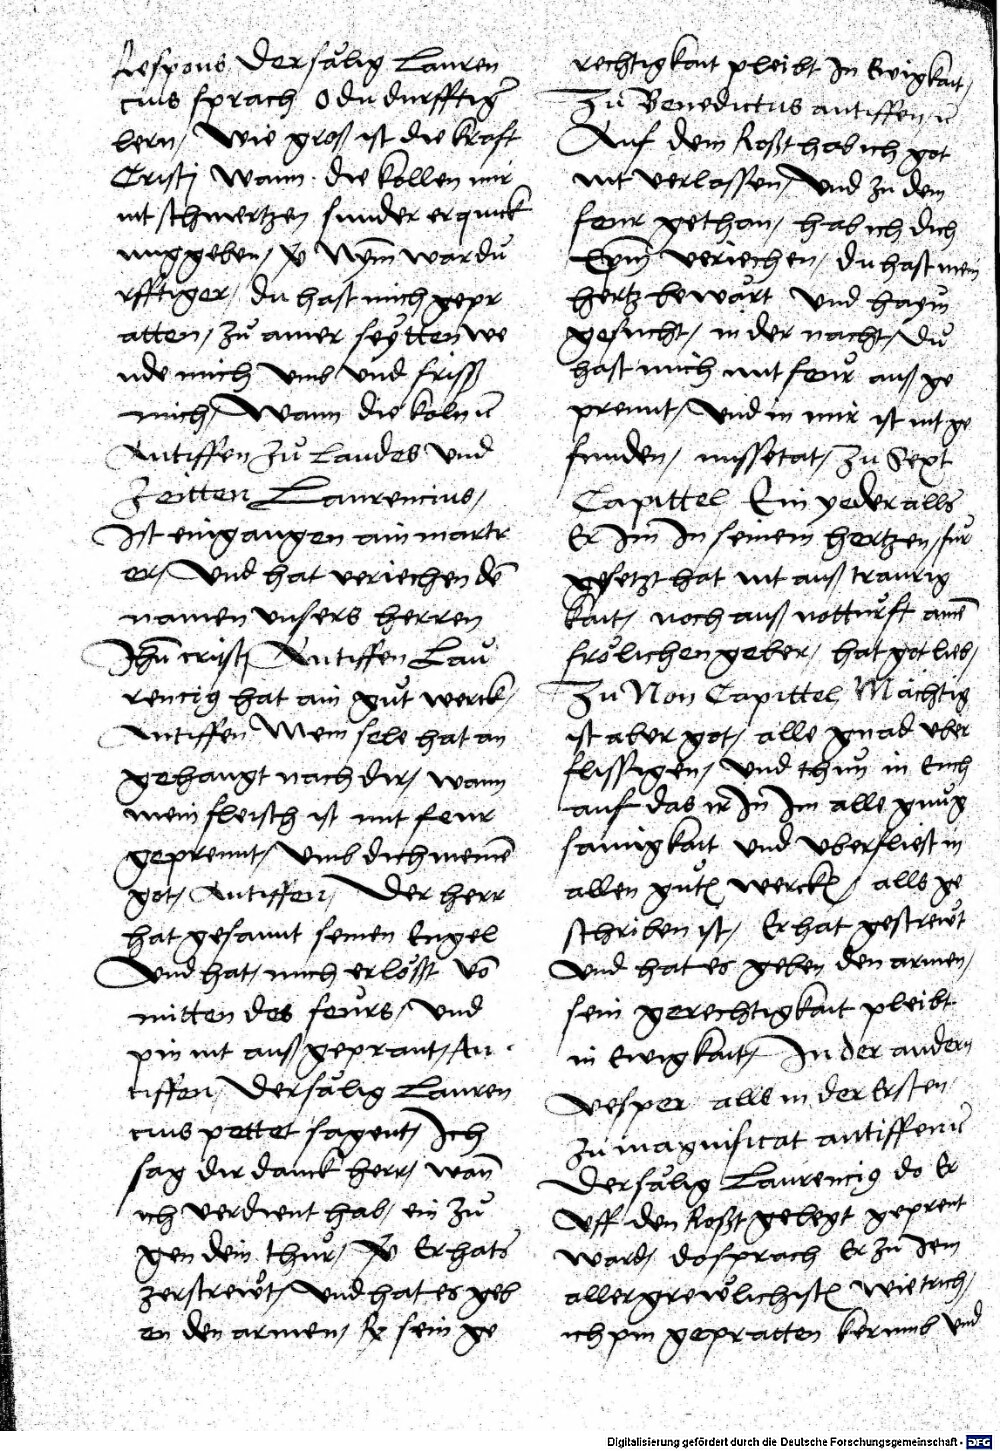 Respons Der sålig Lauren
cius sprach O du durfftig̃
lern / Wie groß ist die krafft
Cristj Wann die kollen mir
nit schmertzen sunder erquick
ung geben / ꝟ Nym̃ war du
rfftiger / du hast mich gepr
atten / zů ainer seÿtten we
nde mich umb Und friss
mich / Wann die koln ꝛc
Antiffen Zů Laudes Und
Zeitten Laurencius /
Ist eingangen ain martr
er / Und hat veriechen dē
namen unsers herren
Jhū cristj Antiffen Lau
rencig hat ain gůt werck /
Antiffen Mein sele hat an
gehangt nach dir / wann
mein fleisch ist mit feur
geprennt / Umb dich meinē
got / Antiffen / Der herr
hat gesannt seinen Engel
Und hat / mich erlößt vō
mitten des feůrs / Und
pin nit auß geprant / An
tiffen / Der sålig Lauren
cius pettet sagent / Ich
sag dir danck herr / wañ
ich verdient hab / ein zů
gen dein thůr / ꝟ Er hats
zerstrewt / Und hat es geb
en den armen / ꝶ sein ge
rechtigkait pleibt In Ewigkait /
Zů Benedictus antiffen ꝛc
Auf dem Roßt hab ich got
nit verlassen / Und zu dem
feur gethan / hab ich dich
veriechen / du hast mein
hertz bewårt Und haÿm
gesucht / in der nacht / Du
hast mich mit feůr auß ge
prennt / Und in mir ist nit ge
funden / missetat / Zu Sext
Capittel Ein yeder alls
Er Im In seinem hertzen / für
gesetzt hat nit auß traurig
kait / noch auß notturft ainē
frölichen geber / hat got lieb /
Zu Non Capittel Måchtig
ist aber got / alle gnad uber
flissigen / Und thun in Euch
auf das ir In Im alle gnůg
samigkait Und Uberfliest in
allen gutē werckē / alls ge
schriben ist / Er hat gestrewt
Und hat es geben den armen /
sein gerechtigkait pleibt
in Ewigkait / In der andern
Vesper alls in der Ersten
Zu magnificat antiffen ꝛc
Der sålig Laurencig do Er
Uff den Roßt gelegt geprent
ward / do sprach Er zu dem
allergrewlichistē wietrich /
ich pin gepratten ker umb Und
Digitalisierung gefördert durch die Deutsche Forschungsgemeinschaft - DFG